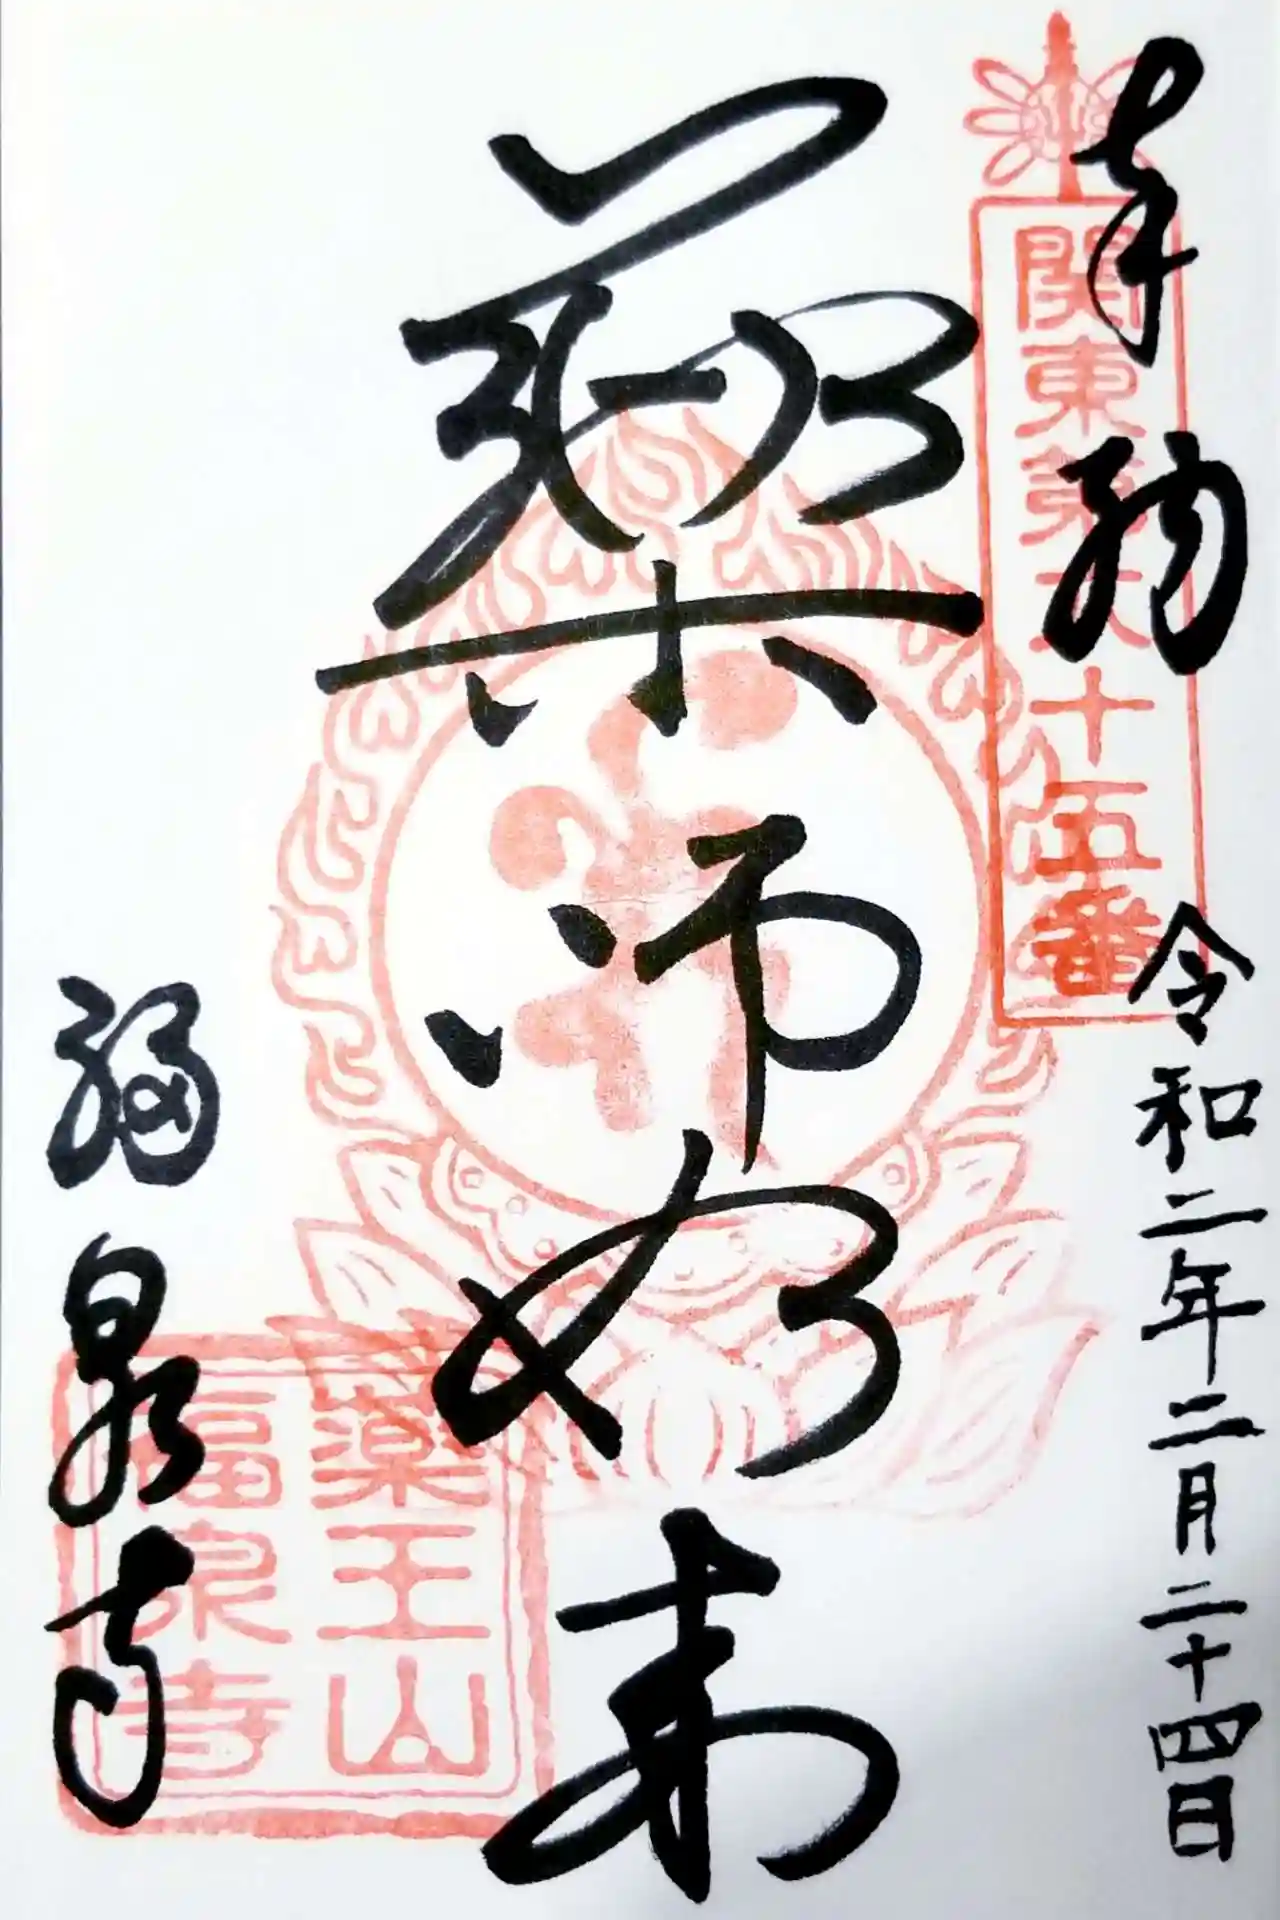 奉納
関東第六十五番
令和二年二月二十四日
薬師如来
薬王山
福泉寺
福泉寺